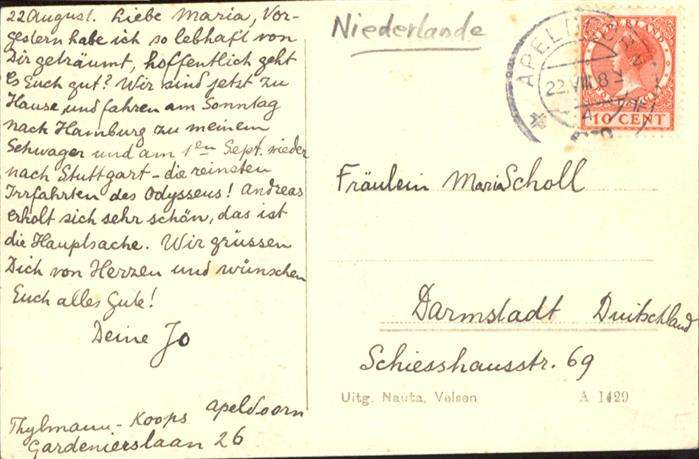 22 August. Liebe Maria, Vor-
gestern habe ich so lebhaft von
Dir geträumt, hoffentlich geht
es Euch gut? Wir sind jetzt zu
Hause und fahren am Sonntag
nach Hamburg zu meinem
Schwager und am 1en Sept. wieder
nach Stuttgart - die reinsten
Irrfahrten des Odysseus! Andreas
erholt sich sehr schön, das ist
die Hauptsache. Wir grüssen
Dich von Herzen und wünschen
Euch alles Gute!
Deine Jo
Thylmann-Koops Apeldoorn
Gardenierslaan 26
Niederlande
APELDOORN
22.VIII.8
4
NEDERLAND
10 CENT
Fräulein Maria Scholl
Darmstadt Duitschland
Schiesshausstr. 69
Uitg. Nauta, Velsen A 1429